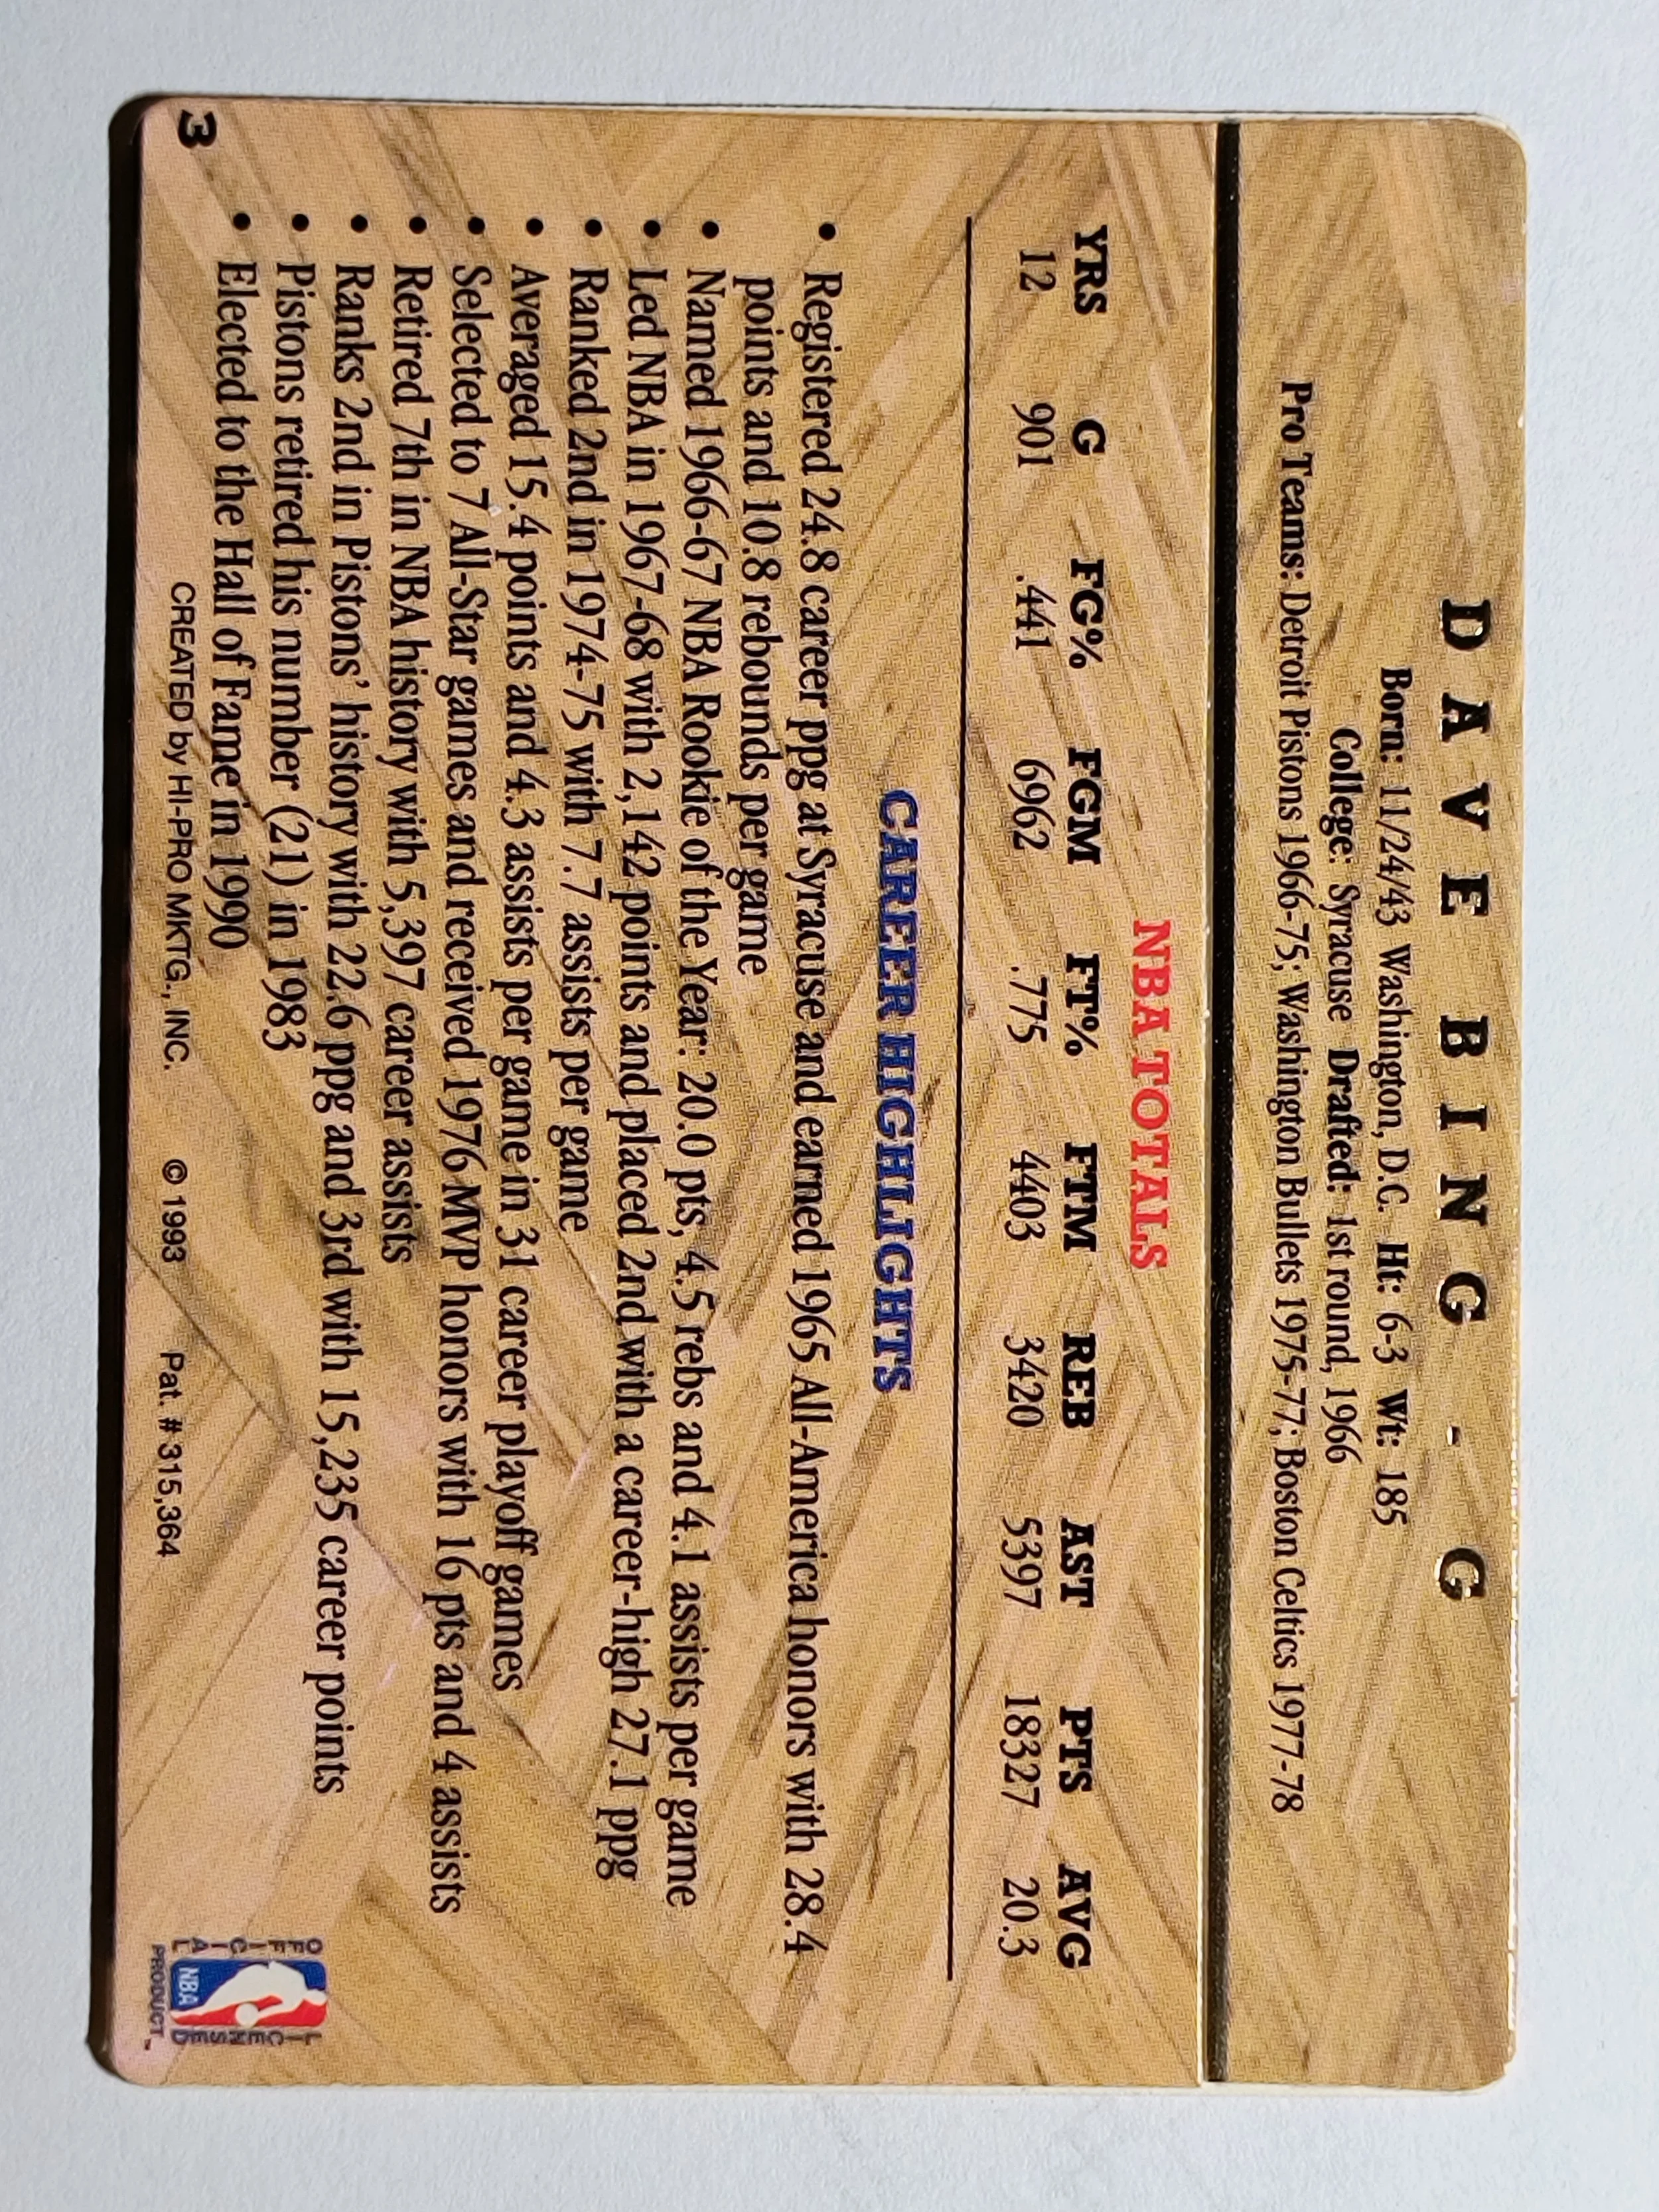 DAVE BING - G
Born: 11/24/43 Washington, D.C. Ht: 6-3 Wt: 185
College: Syracuse Drafted: 1st round, 1966
Pro Teams: Detroit Pistons 1966-75; Washington Bullets 1975-77; Boston Celtics 1977-78
NBA TOTALS
YRS G FG% FGM FT% FTM REB AST PTS AVG
12 901 .441 6962 .775 4403 3420 5397 18327 20.3
CAREER HIGHLIGHTS
• Registered 24.8 career ppg at Syracuse and earned 1965 All-America honors with 28.4
points and 10.8 rebounds per game
• Named 1966-67 NBA Rookie of the Year: 20.0 pts, 4.5 rebs and 4.1 assists per game
• Led NBA in 1967-68 with 2,142 points and placed 2nd with a career-high 27.1 ppg
• Ranked 2nd in 1974-75 with 7.7 assists per game
• Averaged 15.4 points and 4.3 assists per game in 31 career playoff games
• Selected to 7 All-Star games and received 1976 MVP honors with 16 pts and 4 assists
• Retired 7th in NBA history with 5,397 career assists
• Ranks 2nd in Pistons' history with 22.6 ppg and 3rd with 15,235 career points
• Pistons retired his number (21) in 1983
• Elected to the Hall of Fame in 1990
3
CREATED by HI-PRO MKTG., INC. © 1993 Pat. # 315,364
OFFICIAL
NBA
LICENSED
PRODUCT™